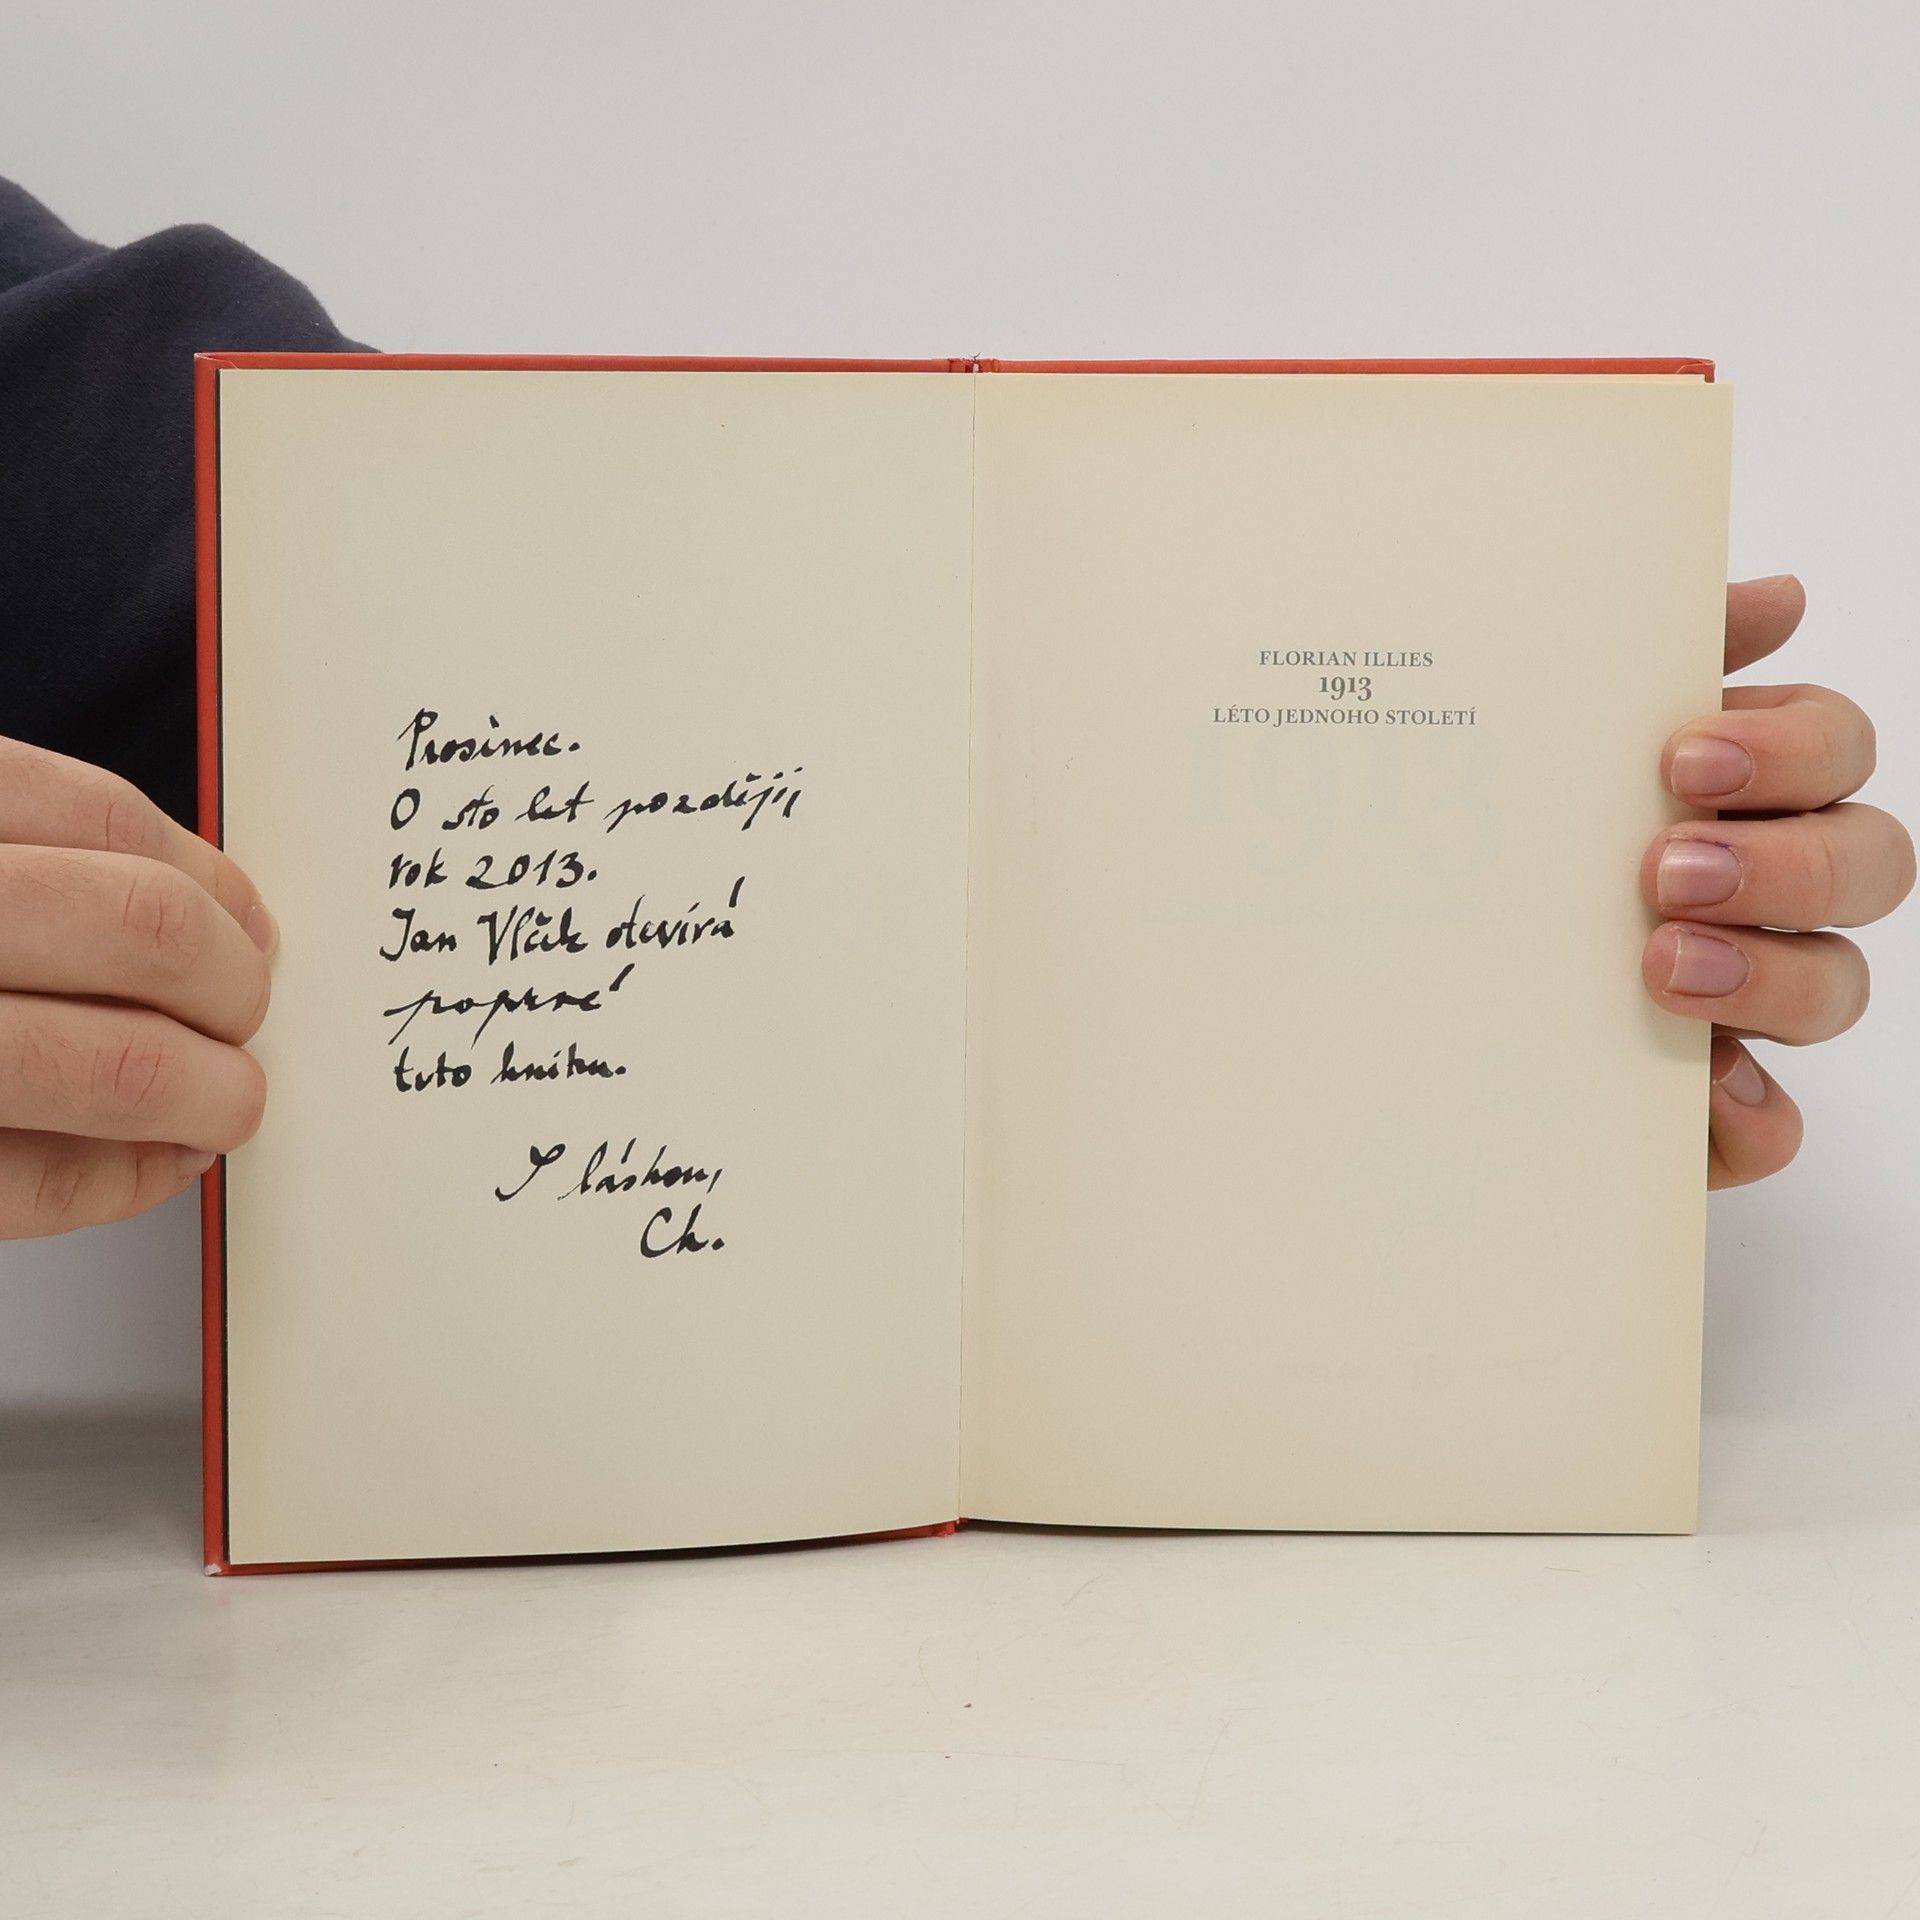 Prosinec.
O sto let později,
rok 2013.
Jan Vlček otevírá
poprvé
tuto knihu.
S láskou,
Ch.
FLORIAN ILLIES
1913
LÉTO JEDNOHO STOLETÍ